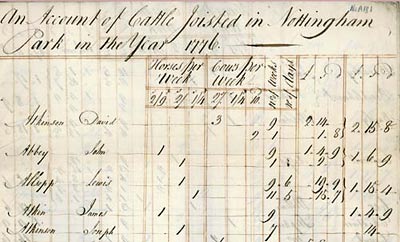 An Account of Cattle Joisted in Nottingham
Park in the Year 1776.
Horses per Week Cows per Week No. of Weeks No. of days
2/9 2/ 1/4 2/ 1/4
Atkinson David 3 9 2.14
2 1 1.8 2.15.8
Abbey John 1 9 1.4.9
1 1 2 1.6.9
Allsopp Lewis 1 9 6 19.9
1 11 5 15.7 1.15.4
Atkin James 1 9 1.4.9
Atkinson Joseph 1 7 14